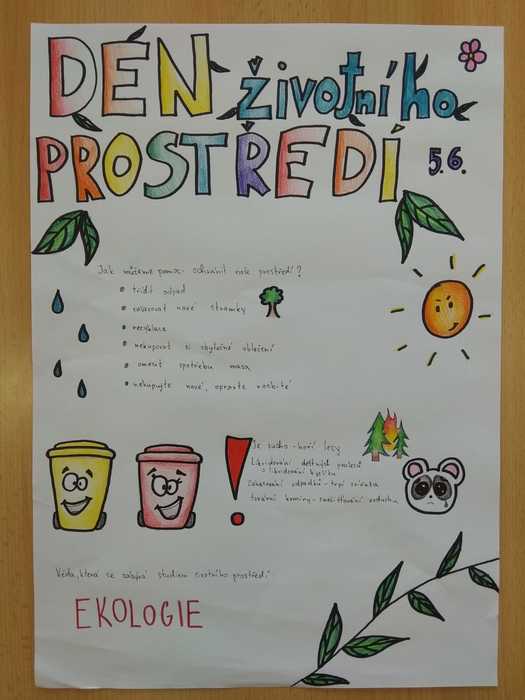 DEN životního
PROSTŘEDÍ 5.6.
Jak můžeme pomoc ochránit naše prostředí?
třídit odpad
nové stromky
recyklace
nekupovat si zbytečné oblečení
omezit spotřebu masa
nekupujte nové, opravte rozbité
Je sucho - hoří lesy
Likvidování deštných pralesů
= likvidování kyslíku
odpadků - trpí zvířata
tovární komíny - znečišťování vzduchu
Věda, která se zabývá studiem životního prostředí:
EKOLOGIE